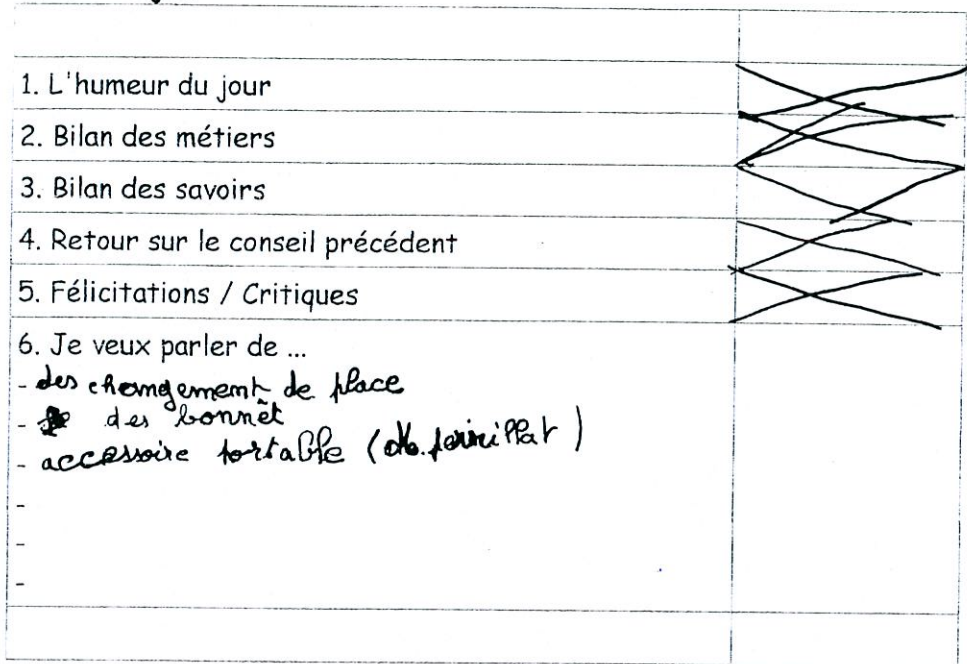 1. L'humeur du jour
2. Bilan des métiers
3. Bilan des savoirs
4. Retour sur le conseil précédent
5. Félicitations / Critiques
6. Je veux parler de ...
- des changement de place
- des bonnet
- accessoire portable (
-
-
-